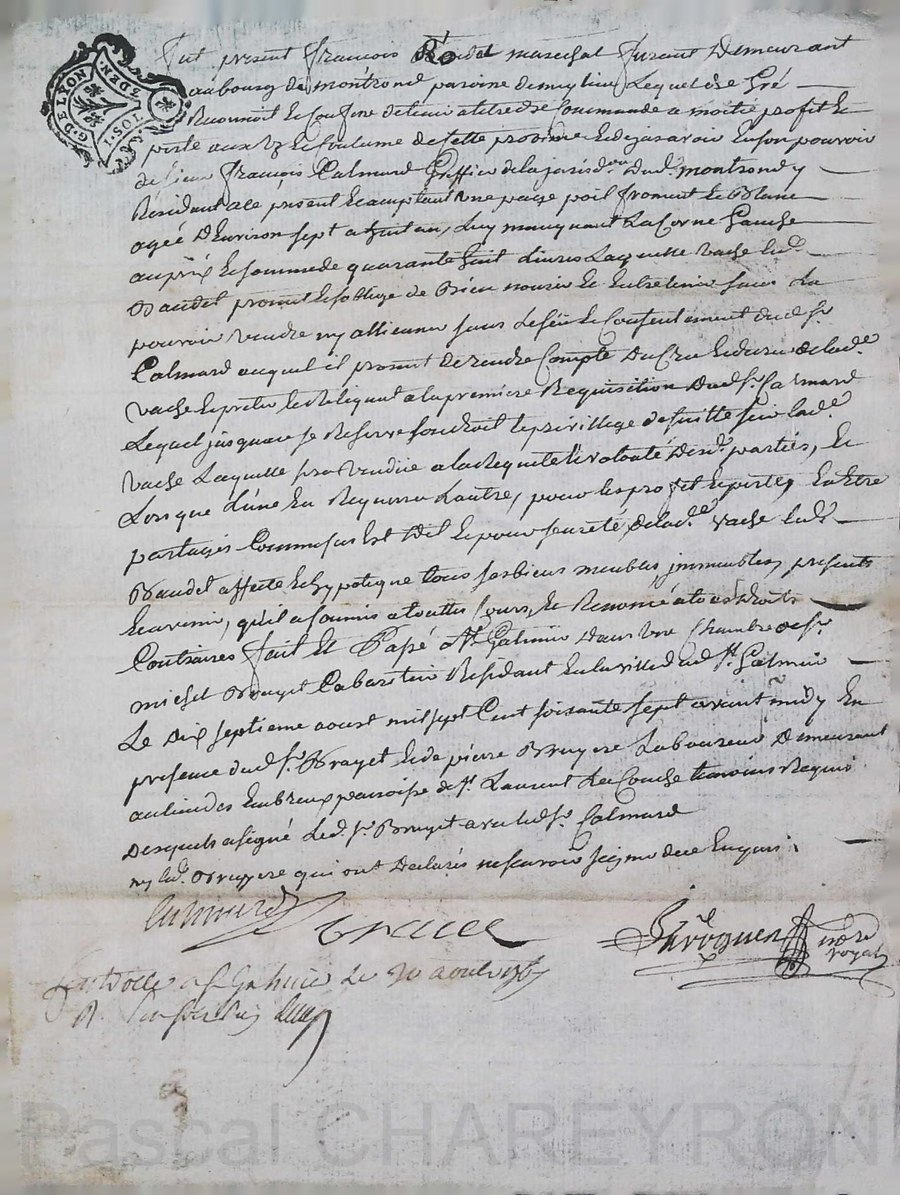 G. DE LYON
3 DEN.
IIOS. I
Fut present François maréchal Jurant Demeurant
au bourg de montrond paroisse de meylieu Lequel de Gré
Reconnoit Le Confesse detenir a titre de Commande a moitié profit Et
perte aux uz Et Coutume de Cette province Et deja avoir En son pouvoir
de sieur François Calmard Greffier de la jurisd.on dud. montrond y
Residant a ce présent Et acceptant Une vache poil froment Et Blanc
agée D'Environ sept a huit an, Luy manquant La Corne Gauche
au prix Et somme de quarante huit Livres Laquelle vache Led.
Baudet promet Et soblige de Bien nourir Et Entretenir sans La
pouvoir vendre ny alliener sans Le sceu Et Consentement dud. Sr.
Calmard auquel il promet De rendre Compte Du Cru Et decru de lad.e
vache Et prêter Le Reliquat a la premiere Requisition Dud. Sr. Calmard
Lequel jusqu'a ce se Reserve son droit Et privillege de suitte sur lad.e
vache Laquelle sera vendüe a la Requete Et volonté Desd. parties, Et
Lorsque L'une En Requerra L'autre, pour Les profit Et perte, En Etre
partagés Comme sus Est dit Et pour seureté de lad.e vache Led.
Baudet affecte Et hypoteque tous ses biens meubles immeubles, presents
Et avenir, qu'il a soumis a touttes Cours, Et Renoncé a tous droits
Contraires Fait Et Passé a St. Galmier Dans Une Chambre de Sr.
michel Brayet Cabaretier Residant En la ville dud. St. Galmier
Le Dix septieme aoust mil sept Cent soixante sept avant midy En
presence dud. Sr. Brayet Et de pierre Bruyere Laboureur Demeurant
au lieu des Embreux paroisse de St. Laurent La Conche temoins Requis
Desquels a signé Led. Sr. Brayet avec led. Sr. Calmard
ny led. Bruyere qui ont Declarés ne scavoir signer de ce Enquis.
Calmard
Brayet
nore
royal
Controllé a St Galmier le 20 aoust 1767
R.
Pascal CHAREYRON